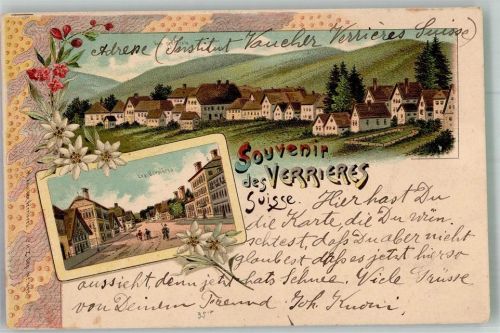 Adresse (Institut Vaucher Verrières Suisse)
Souvenir
des VERRIERES
Suisse.
Les Verrières
Hier hast Du
die Karte, die Du wün
schtest, daß Du aber nicht
glaubest daß es jetzt hier so
aussieht, denn jetzt hats Schnee. Viele Grüsse
von Deinem Freund Joh.
35